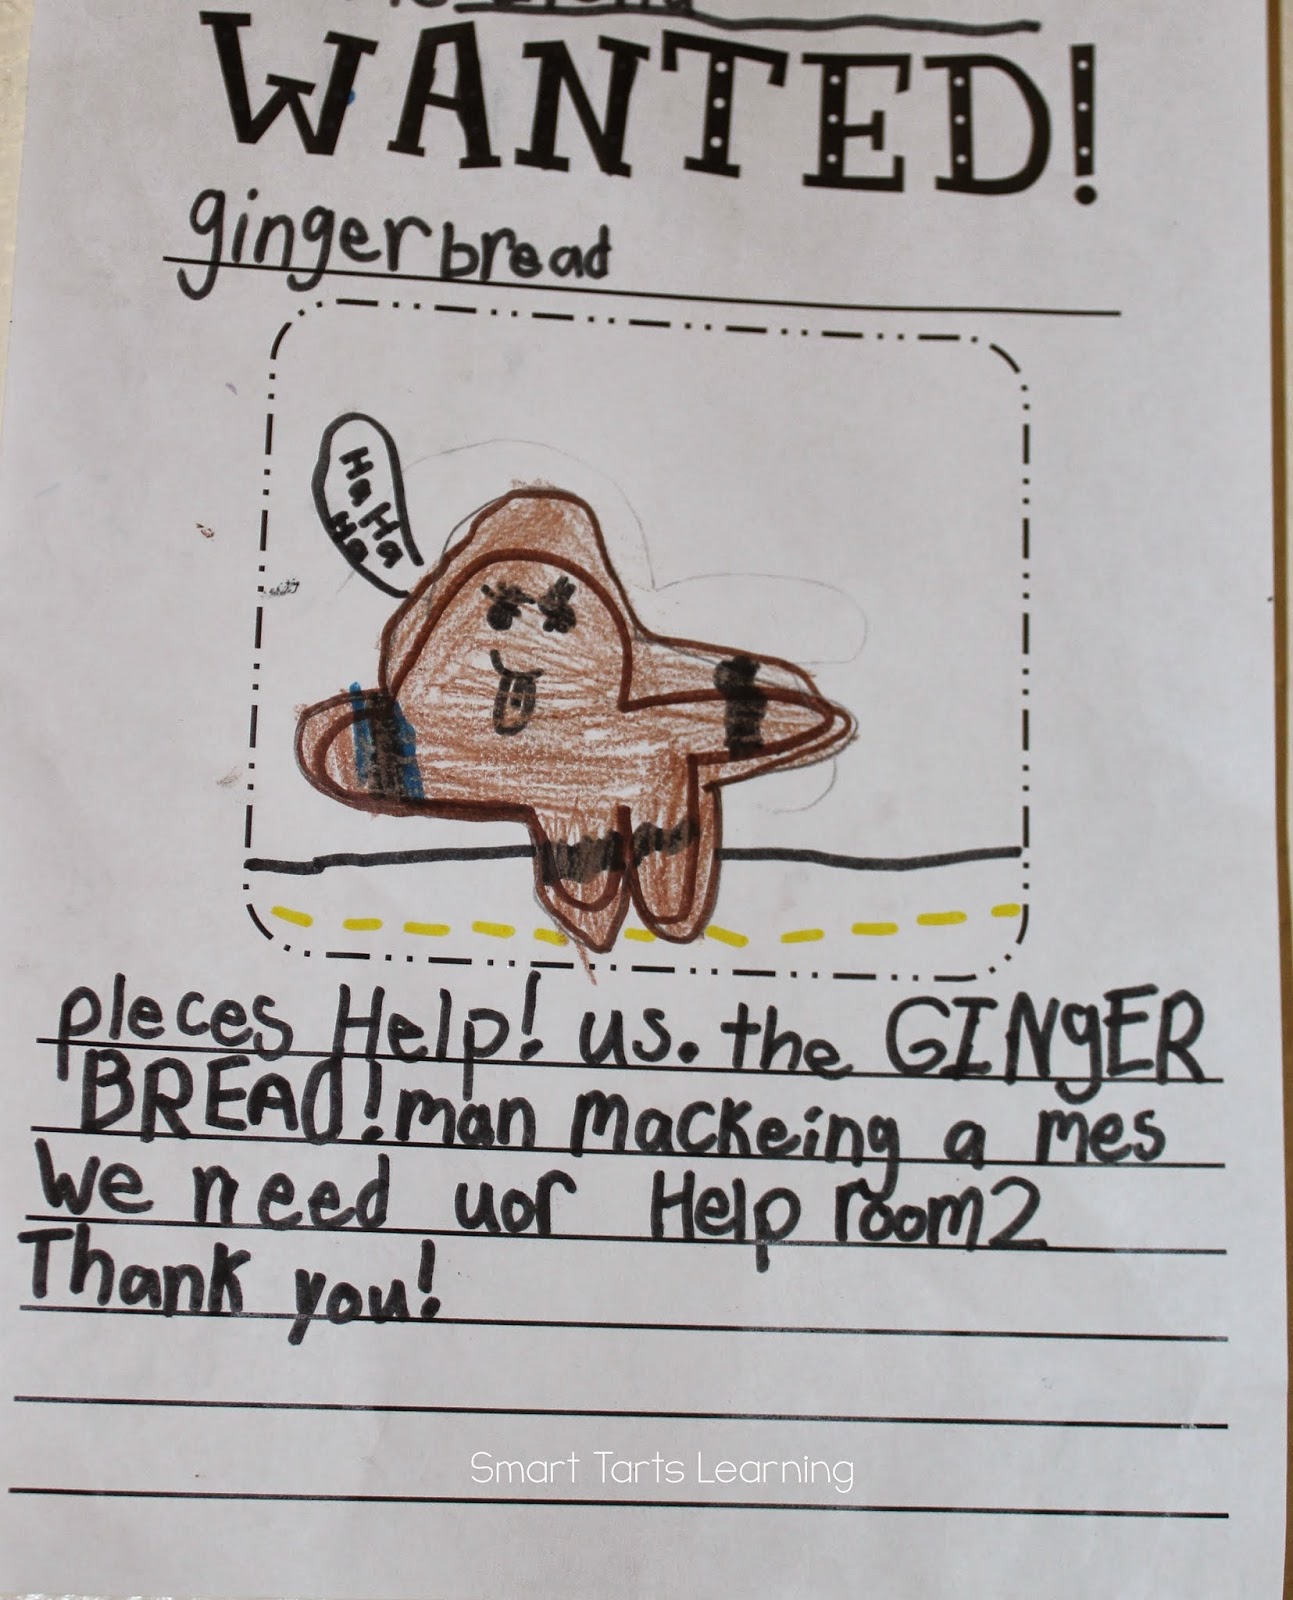 WANTED!
gingerbread
Ha
Ha
Ha
pleces Help! us. the GINgER
BREAD! man mackeing a mes
We need uor Help room 2
Thank you!
Smart Tarts Learning